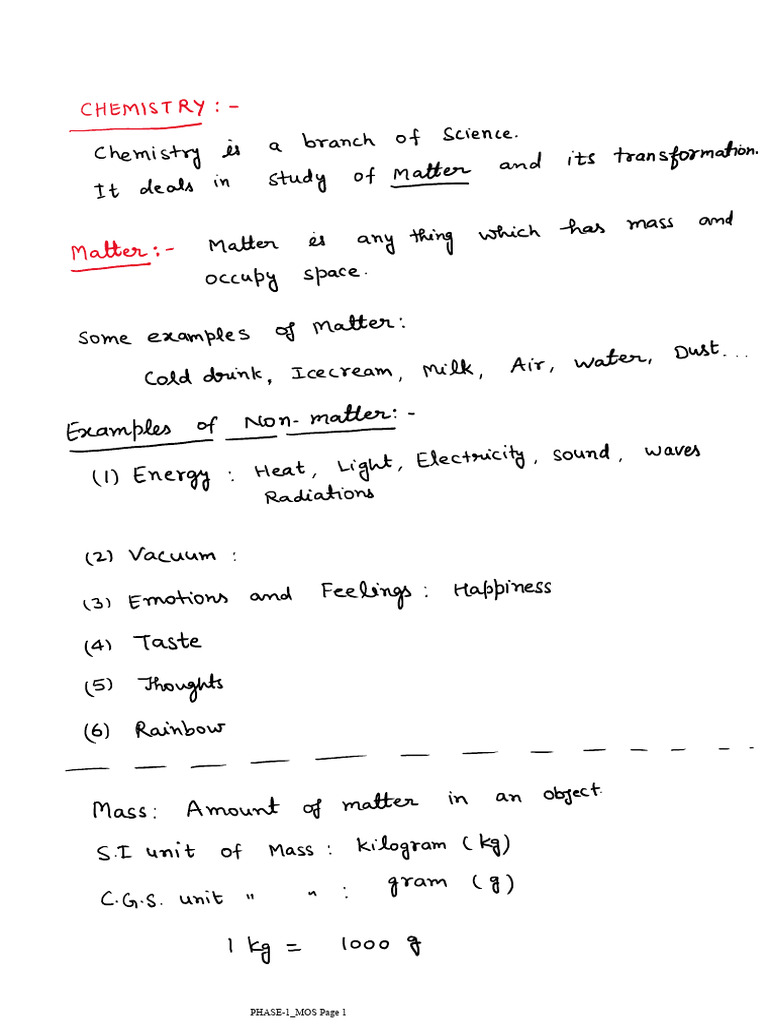 CHEMISTRY : -
Chemistry is a branch of Science.
It deals in study of Matter and its transformation.
Matter : - Matter is any thing which has mass and
occupy space.
Some examples of Matter :
Cold drink, Icecream, Milk, Air, Water, Dust...
Examples of Non-matter : -
(1) Energy : Heat, Light, Electricity, Sound, waves
Radiations
(2) Vacuum :
(3) Emotions and Feelings : Happiness
(4) Taste
(5) Thoughts
(6) Rainbow
Mass : Amount of matter in an object.
S.I unit of Mass : kilogram (kg)
C.G.S. unit " " : gram (g)
1 kg = 1000 g
PHASE-1_MOS Page 1